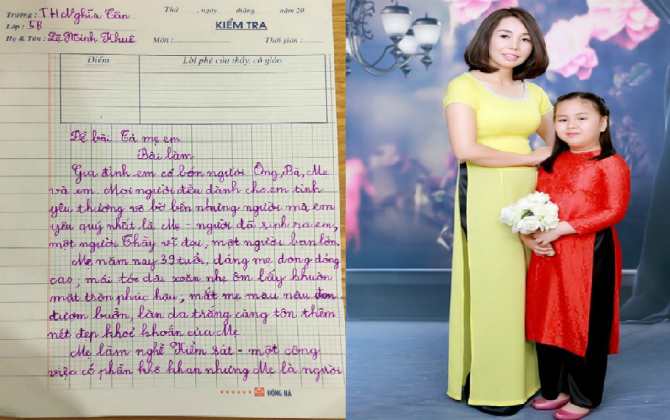 Trường: TH Nghĩa Tân
Thứ ...... ngày ...... tháng ...... năm 20
Lớp: 5B
KIỂM TRA
Họ & Tên: Lê Minh Khuê
Môn: Thời gian:
Điểm
Lời phê của thầy, cô giáo
Đề bài: Tả mẹ em
Bài làm
Gia đình em có bốn người: Ông, Bà, Mẹ
và em. Mọi người đều dành cho em tình
yêu thương vô bờ bến nhưng người mà em
yêu quý nhất là Mẹ - người đã sinh ra em,
một người Thầy vĩ đại, một người bạn lớn.
Mẹ năm nay 39 tuổi, dáng mẹ dong dỏng
cao, mái tóc dài xoăn nhẹ ôm lấy khuôn
mặt tròn phúc hậu, mắt mẹ màu nâu
đượm buồn, làn da trắng càng tôn thêm
nét đẹp khoẻ khoắn của Mẹ
Mẹ làm nghề Kiểm sát - một công
việc có phần khô khan nhưng Mẹ là người
HỒNG HÀ